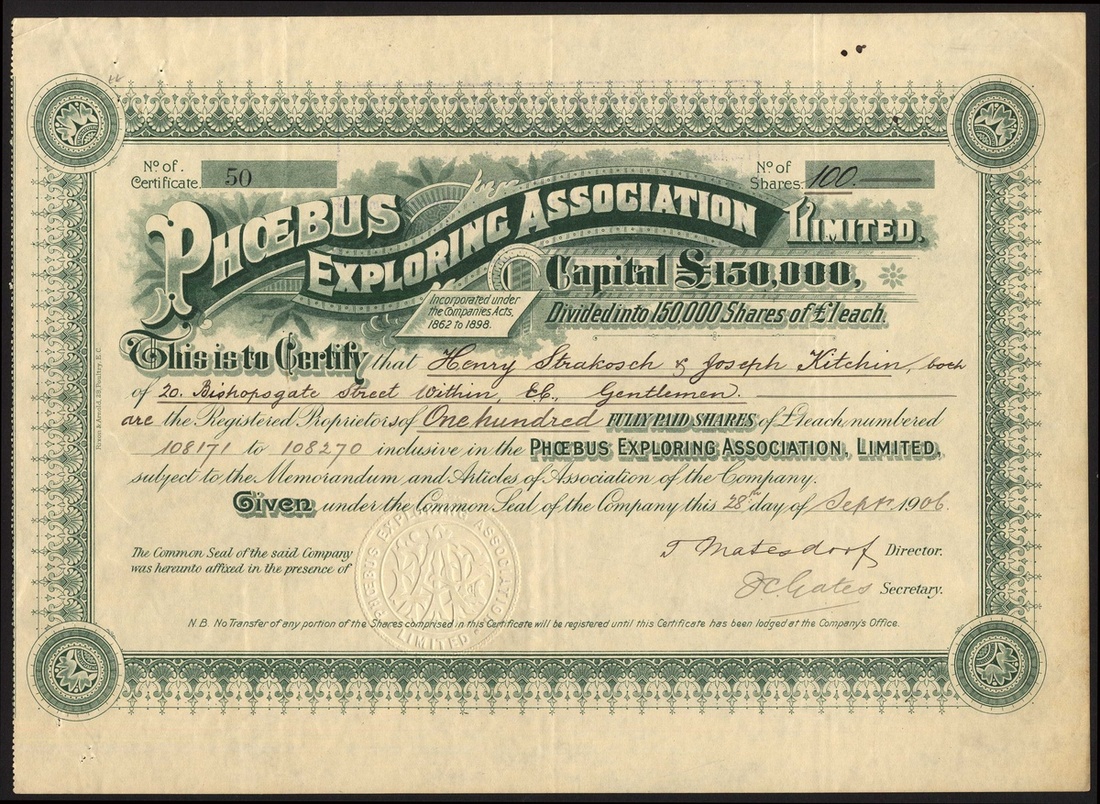 Nº of Certificate. 50
Nº of Shares: 100.
PHŒBUS EXPLORING ASSOCIATION LIMITED.
Capital £150,000,
Incorporated under the Companies Acts, 1862 to 1898.
Divided into 150,000 Shares of £1 each.
This is to Certify that Henry Strakosch & Joseph Kitchin, both
of 20. Bishopsgate Street Within, E.C., Gentlemen.
are the Registered Proprietors of One hundred FULLY PAID SHARES of £1 each, numbered
108171 to 108270 inclusive in the PHŒBUS EXPLORING ASSOCIATION, LIMITED,
subject to the Memorandum and Articles of Association of the Company.
Given under the Common Seal of the Company this 28th day of Septr. 1906.
The Common Seal of the said Company
was hereunto affixed in the presence of
PHŒBUS EXPLORING ASSOCIATION LIMITED
Matesdorf Director.
Gates Secretary.
N.B. No Transfer of any portion of the Shares comprised in this Certificate will be registered until this Certificate has been lodged at the Company's Office.